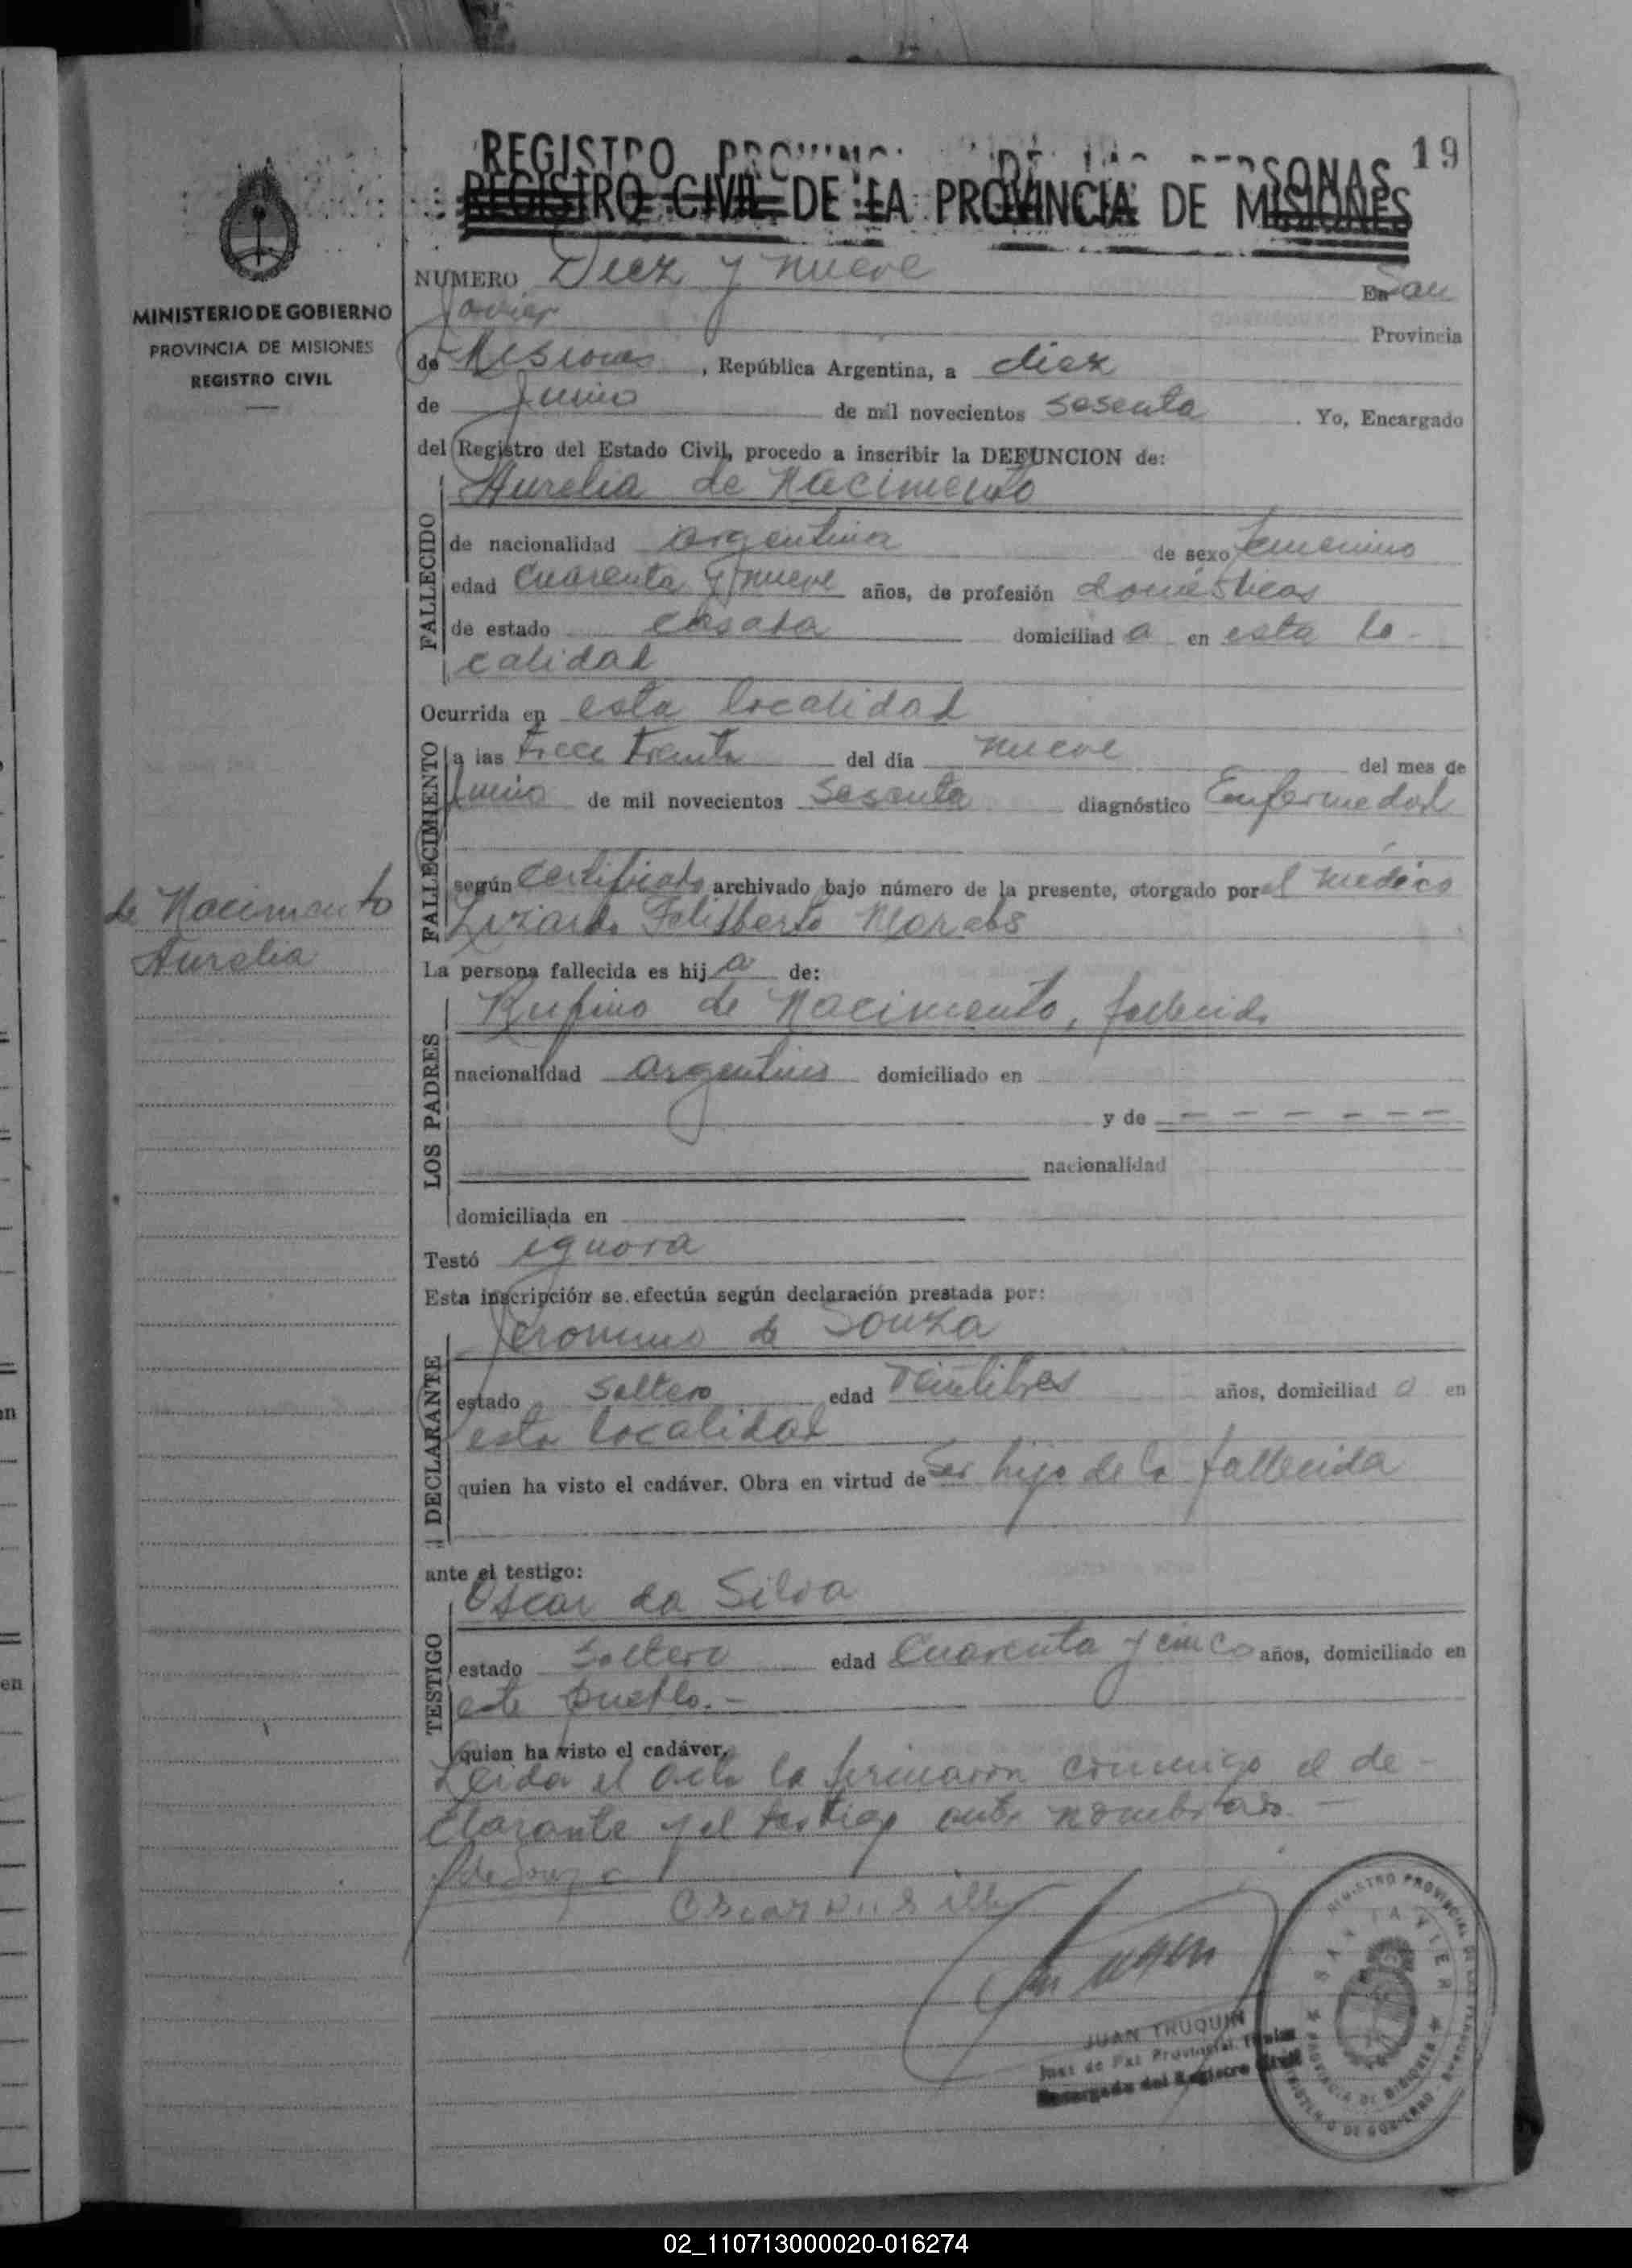 19
REGISTRO CIVIL DE LA PROVINCIA DE MISIONES
MINISTERIO DE GOBIERNO
PROVINCIA DE MISIONES
REGISTRO CIVIL
NUMERO Diez y nueve En San
Javier Provincia
de Misiones, República Argentina, a diez
de Junio de mil novecientos sesenta. Yo, Encargado
del Registro del Estado Civil, procedo a inscribir la DEFUNCION de:
Aurelia de Nacimento
FALLECIDO
de nacionalidad argentina de sexo femenino
edad Cuarenta y nueve años, de profesión domésticas
de estado casada domiciliad a en esta lo-
calidad
Ocurrida en esta localidad
FALLECIMIENTO
a las trece treinta del día nueve del mes de
Junio de mil novecientos sesenta diagnóstico Enfermedad
según certificado archivado bajo número de la presente, otorgado por el médico
Lizardo Felisberto
de Nacimento
Aurelia
La persona fallecida es hija de:
LOS PADRES
Rufino de Nacimento, fallecido
nacionalidad argentino domiciliado en
y de - - - - - -
nacionalidad
domiciliada en
Testó ignora
Esta inscripción se efectúa según declaración prestada por:
DECLARANTE
Jeronimo de Souza
estado soltero edad veintitres años, domiciliad o en
esta localidad
quien ha visto el cadáver. Obra en virtud de ser hijo de la fallecida
ante el testigo:
TESTIGO
Oscar da Silva
estado soltero edad Cuarenta y cinco años, domiciliado en
este pueblo.-
quien ha visto el cadáver.
Leida el acta la firmaron conmigo el de-
clarante y el testigo ante nombrados.-
J de Souza
JUAN TRUQUIN
Juez de Paz Provincial Titular
Encargado del Registro Civil
REGISTRO PROVINCIAL DE LAS PERSONAS
SAN JAVIER
PROVINCIA DE MISIONES
MINISTERIO DE GOBIERNO
02_110713000020-016274